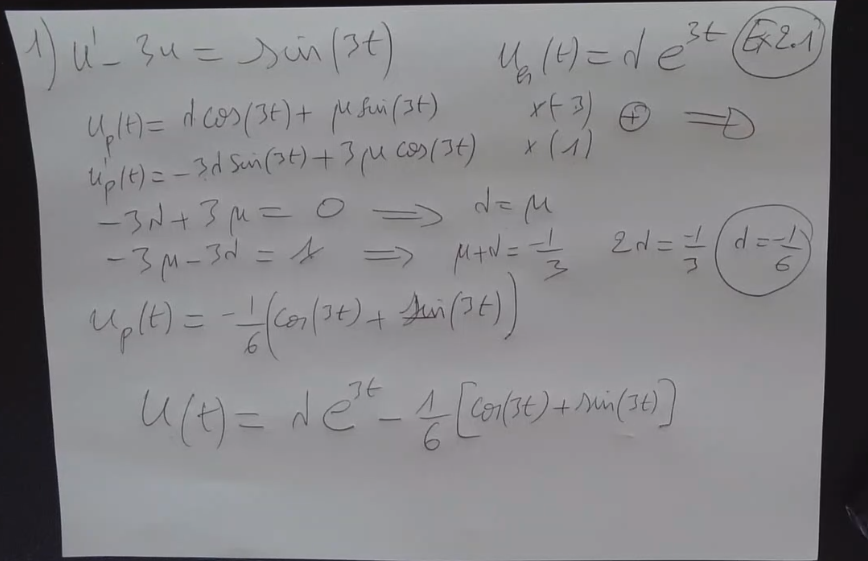 1) u' - 3u = sin(3t) u_h(t) = λ e^{3t} Ex 2.1
u_p(t) = λ cos(3t) + μ sin(3t) ×(-3) ⊕ ⟹
u'_p(t) = -3λ sin(3t) + 3μ cos(3t) ×(1)
-3λ + 3μ = 0 ⟹ λ = μ
-3μ - 3λ = 1 ⟹ μ+λ = -1/3 2λ = -1/3 λ = -1/6
u_p(t) = -1/6 (cos(3t) + sin(3t))
u(t) = λ e^{3t} - 1/6 [cos(3t) + sin(3t)]